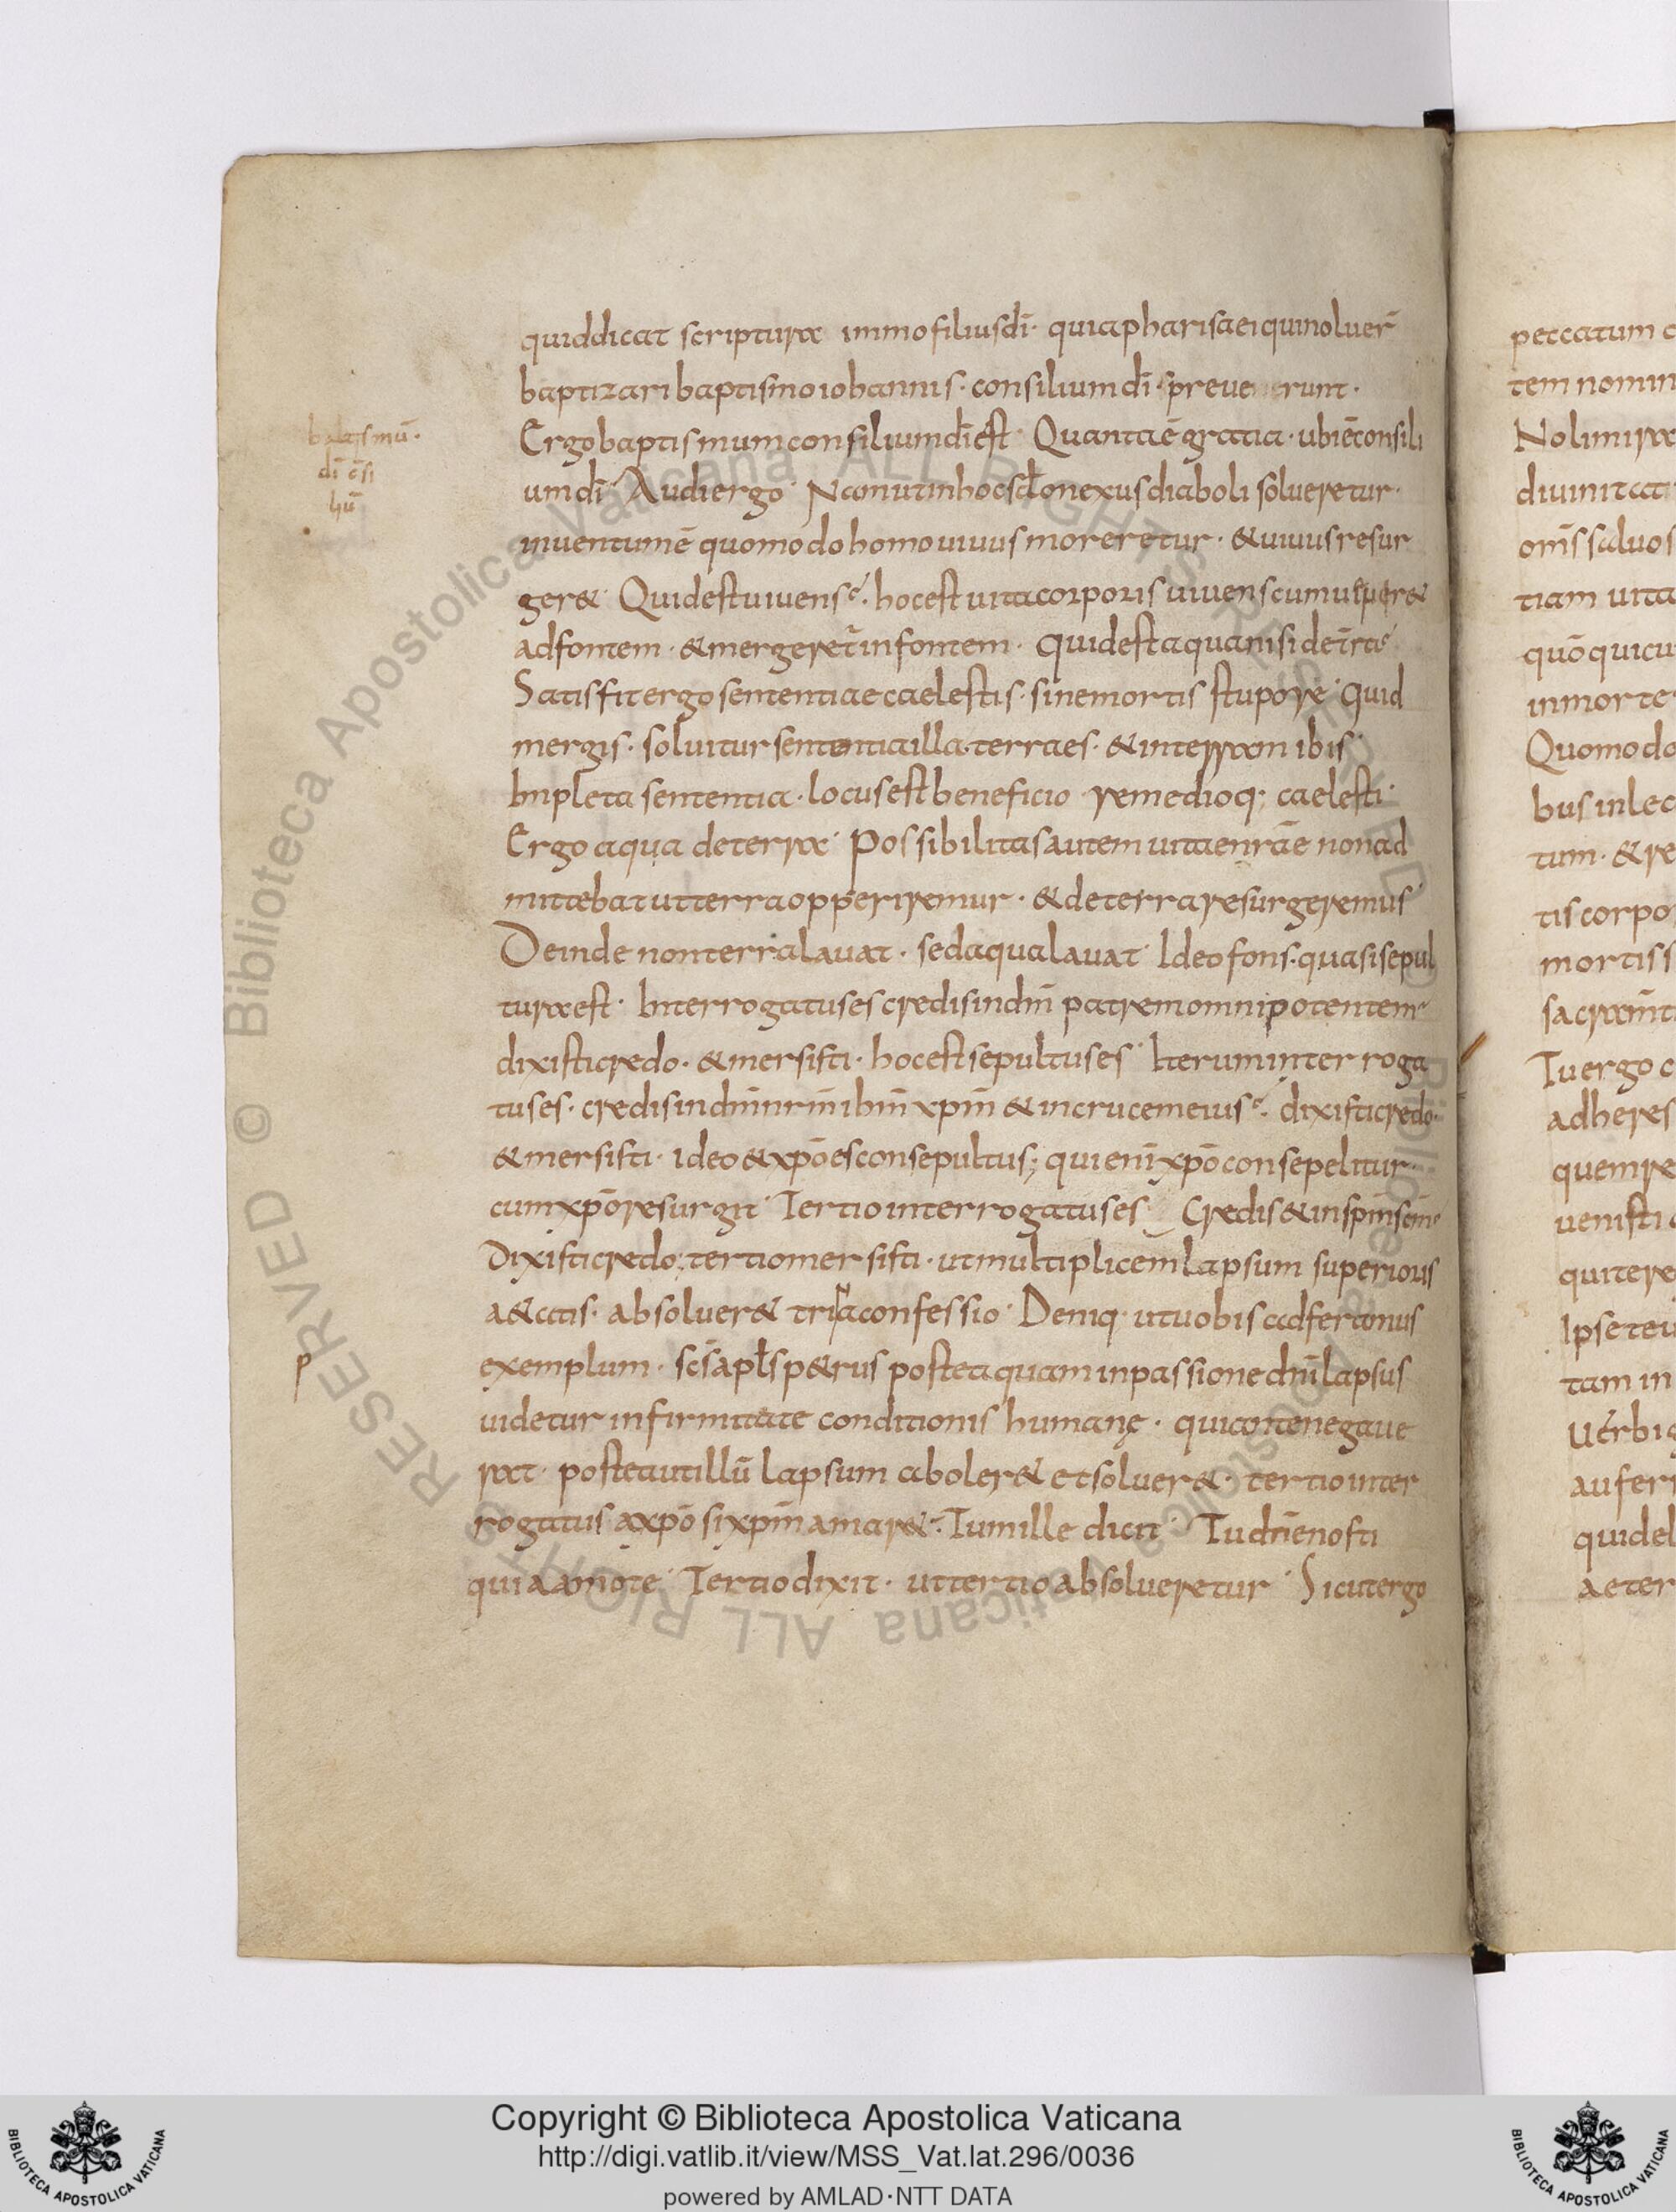 quiddicat scripturae immo filius dī· quia pharisaei qui noluer̄
baptizari baptismo iohannis· consilium dī· spreue runt·
Ergo baptismum consilium dī est· Quanta ē gratia· ubi ē consili
um dī· Audi ergo· Nam ut in hoc scło nexus diaboli solueretur·
inuentum ē quomodo homo uiuus moreretur· & uiuus resur
ger&· Quid est uiuens· hoc est uita corporis uiuens cum
ad fontem· & mergeret̄ in fontem· quid est aqua nisi de
Satis fit ergo sententiae caelestis· sine mortis stupore· quid
mergis· soluitur sententia illa· terra es· & in terram ibis·
Inpleta sententia· locus est beneficio remedioq; caelesti·
Ergo aqua de terra· Possibilitas autem uitae nr̄ae non ad
mittebat ut terra opperiremur· & de terra resurgeremus·
Deinde non terra lauat· sed aqua lauat· Ideo fons· quasi sepul
tura est· Interrogatus es credis in dm̄ patrem omnipotentem
dixisti credo· & mersisti· hoc est sepultus es· Iterum interroga
tus es· credis in dn̄m nr̄m ihm̄ xpm̄ & in crucem eius· dixisti credo·
& mersisti· ideo & xpō es consepultus; qui enī xpō consepelitur·
cum xpō resurgit· Tertio interrogatus es· Credis & in spm̄ scm̄
Dixisti credo; tertio mersisti· ut multiplicem lapsum superioris
a&atis· absoluer& trina confessio· Deniq· ut uobis adferamus
exemplum· scs̄ apłs p&rus posteaquam in passione dn̄i lapsus
uidetur infirmitate conditionis humanę· qui ante negaue
rat· postea ut illū lapsum aboler& et soluer&· tertio inter
rogatus a xpō si xpm̄ amar&· Tum ille dicit· Tu dn̄e nosti
quia amo te· Tertio dixit· ut tertio absolueretur· Sicut ergo
baptismū·
dī c̄si
liū
p
peccatum
tem nomin
Nolimira
diuinitat
om̄s saluos
tiam uita
quō quicu
in morte
Quomodo
bus in lec
tum· & re
tis corpo
mortis s
sacram̄t
Tu ergo
adheres
quem re
uenisti
qui tere
Ipse te u
tam in
uerbi
auferr
quid el
aeter
© Biblioteca Apostolica Vaticana ALL RIGHTS RESERVED
Copyright © Biblioteca Apostolica Vaticana
http://digi.vatlib.it/view/MSS_Vat.lat.296/0036
powered by AMLAD·NTT DATA
BIBLIOTECA APOSTOLICA VATICANA
BIBLIOTECA APOSTOLICA VATICANA